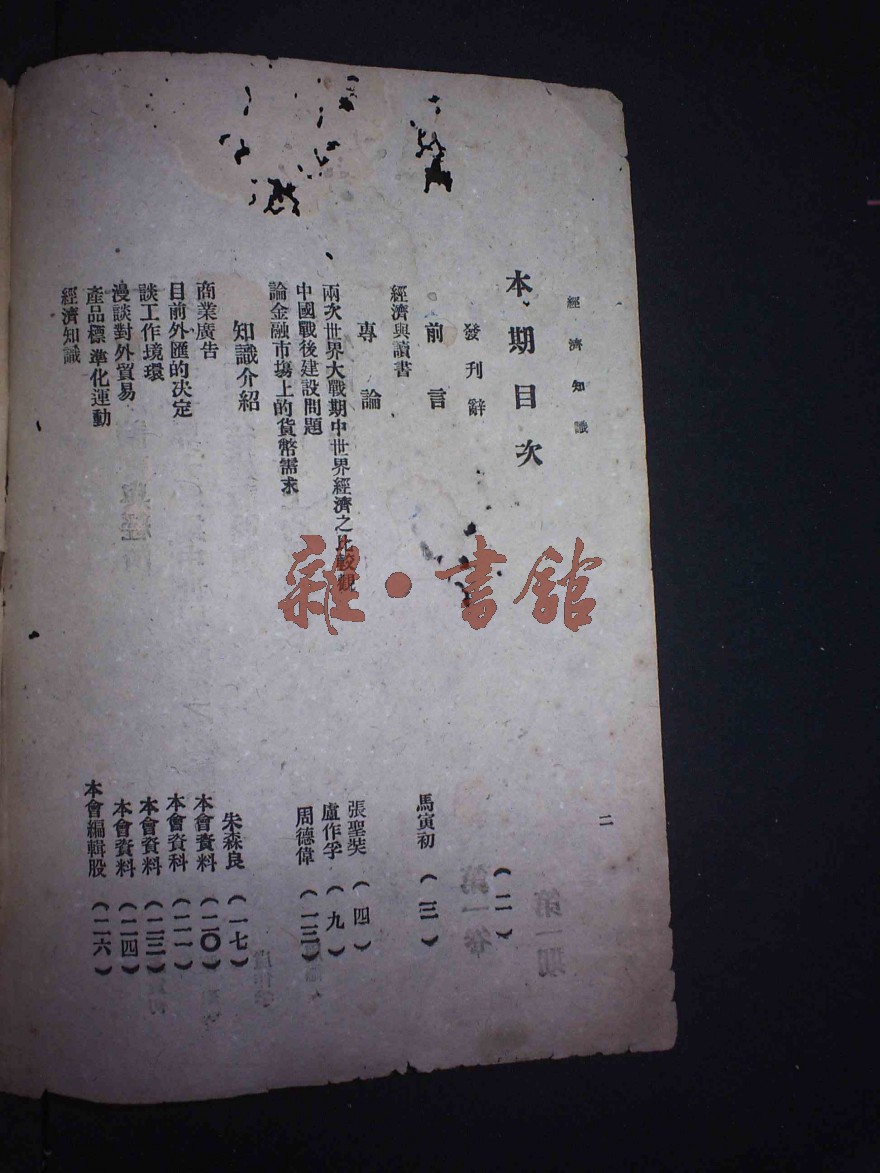 經濟知識 二
本期目次
發刊辭 (二)
前言
經濟與讀書 馬寅初 (三)
專論
兩次世界大戰期中世界經濟之比較觀 張聖奘 (四)
中國戰後建設問題 盧作孚 (九)
論金融市塲上的貨幣需求 周德偉 (一三)
知識介紹
商業廣告 朱森良 (一七)
目前外匯的决定 本會資料 (二〇)
談工作境環 本會資科 (二一)
漫談對外貿易 本會資料 (二三)
產品標準化運動 本會資料 (二四)
經濟知識 本會編輯股 (二六)
雜·書館